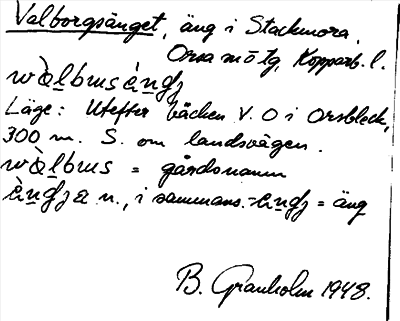 Valborgsänget, äng i Stackmora,
Orsa sn o tg, Kopparb. l.
wàlbus
Läge: Utefter bäcken V. O i Orsbleck,
300 m. S. om landsvägen.
wàlbus = gårdsnamn
n., i sammans. = äng
B. Granholm 1948.